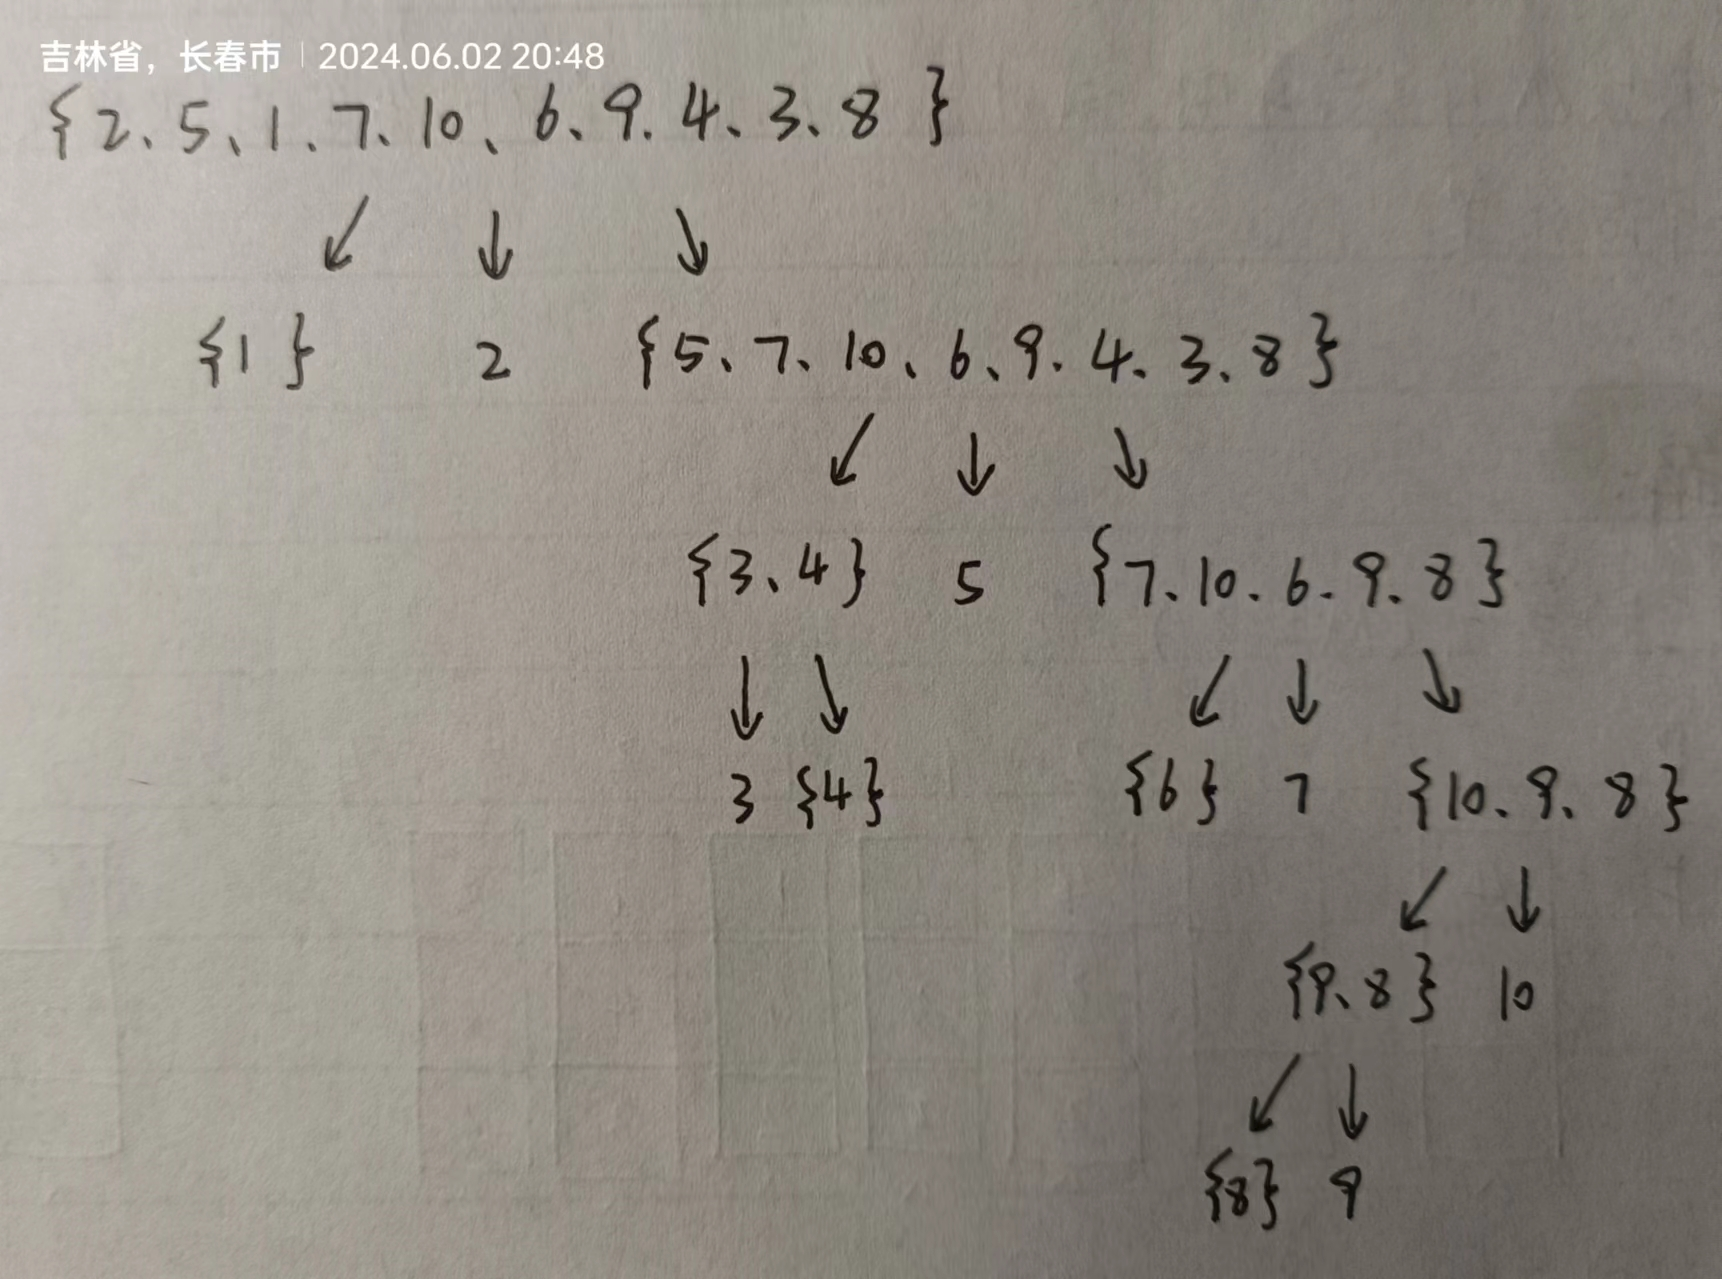 吉林省，长春市 | 2024.06.02 20:48
{2、5、1、7、10、6、9、4、3、8}
↙ ↓ ↘
{1} 2 {5、7、10、6、9、4、3、8}
↙ ↓ ↘
{3、4} 5 {7、10、6、9、8}
↓ ↘ ↙ ↓ ↘
3 {4} {6} 7 {10、9、8}
↙ ↓
{9、8} 10
↙ ↓
{8} 9